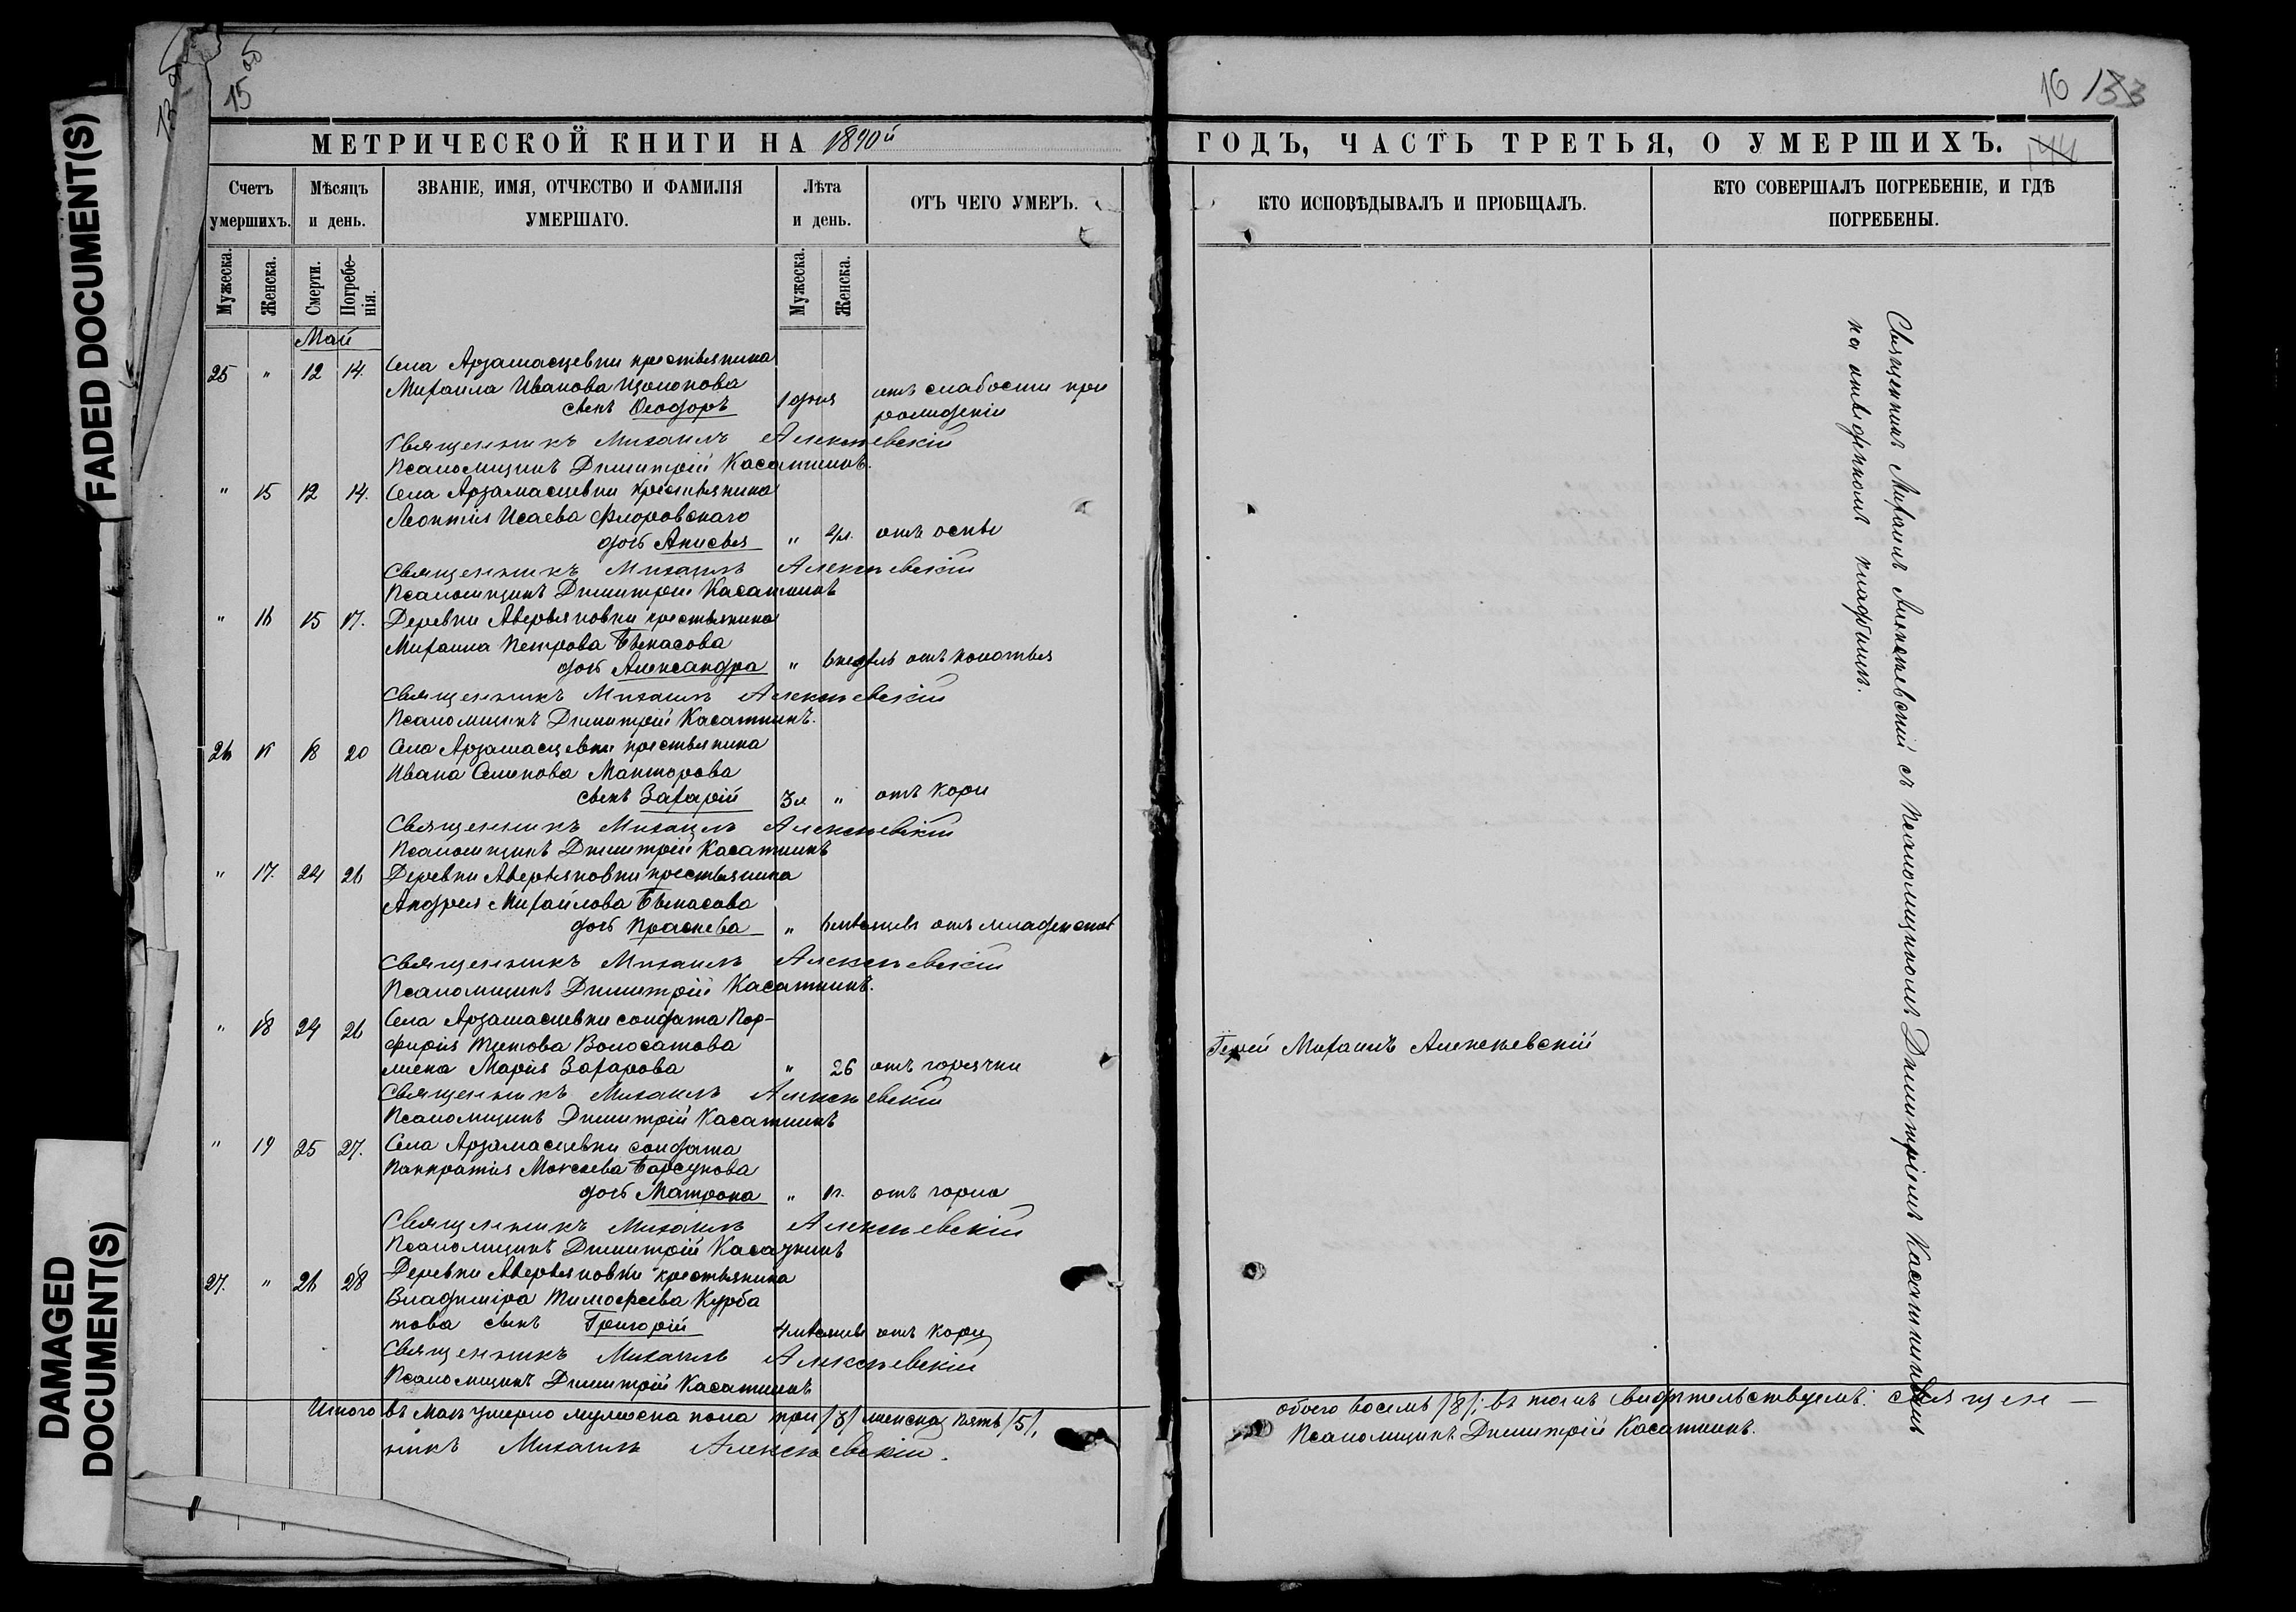 FADED DOCUMENT(S)
DAMAGED
DOCUMENT(S)
15 об
МЕТРИЧЕСКОЙ КНИГИ НА 1890й
Счетъ умершихъ.
Мѣсяцъ и день.
ЗВАНІЕ, ИМЯ, ОТЧЕСТВО И ФАМИЛІЯ УМЕРШАГО.
Лѣта и день.
ОТЪ ЧЕГО УМЕРЪ.
Мужеска.
Женска.
Смерти.
Погребенія.
Мужеска.
Женска.
Май
25 " 12 14. Села Арзамасцевки крестьянина
Михаила Иванова
сынъ Ѳеодоръ 1 дня отъ слабости при
рожденіи
Священникъ Михаилъ Алексѣевскій
Псаломщикъ Димитрій Касаткинъ.
" 15 12 14. Села Арзамасцевки крестьянина
Леонтія Исаева Флоровскаго
дочь Анисья " 4 л. отъ оспы
Священникъ Михаилъ Алексѣевскій
Псаломщикъ Димитрій Касаткинъ
" 16 15 17. Деревни Аверьяновки крестьянина
Михаила Петрова Бѣкасова
дочь Александра " 6 недѣль отъ колотья
Священникъ Михаилъ Алексѣевскій
Псаломщикъ Димитрій Касаткинъ.
26 " 18 20 Села Арзамасцевки крестьянина
Ивана Семенова Манторова
сынъ Захарій 3 л " отъ кори
Священникъ Михаилъ Алексѣевскій
Псаломщикъ Димитрій Касаткинъ
" 17. 24 26 Деревни Аверьяновки крестьянина
Андрея Михайлова Бѣкасова
дочь Праскева " 6 мѣсяцевъ отъ младенской
Священникъ Михаилъ Алексѣевскій
Псаломщикъ Димитрій Касаткинъ.
" 18 24 26 Села Арзамасцевки солдата Пор-
фирія Титова Волосатова
жена Марія Захарова " 26 отъ горячки
Священникъ Михаилъ Алексѣевскій
Псаломщикъ Димитрій Касаткинъ
" 19 25 27. Села Арзамасцевки солдата
Панкратія Моисеева Барсукова
дочь Матрона " 1 г. отъ горла
Священникъ Михаилъ Алексѣевскій
Псаломщикъ Димитрій Касаткинъ
27. " 26 28 Деревни Аверьяновки крестьянина
Владиміра Тимофеева Курба
това сынъ Григорій 4 мѣсяцевъ отъ кори
Священникъ Михаилъ Алексѣевскій
Псаломщикъ Димитрій Касаткинъ
Итого въ маѣ умерло мужеска пола три /3/ женска пять /5/,
никъ Михаилъ Алексѣевскій.
16 133
144
ГОДЪ, ЧАСТЬ ТРЕТЬЯ, О УМЕРШИХЪ.
КТО ИСПОВѢДЫВАЛЪ И ПРІОБЩАЛЪ.
КТО СОВЕРШАЛЪ ПОГРЕБЕНІЕ, И ГДѢ ПОГРЕБЕНЫ.
Іерей Михаилъ Алексѣевскій
Священникъ Михаилъ Алексѣевскій съ Псаломщикомъ Димитріемъ Касаткинымъ
на отведенномъ кладбищѣ.
обоего восемь /8/; въ томъ свидѣтельствуемъ: священ-
Псаломщикъ Димитрій Касаткинъ.